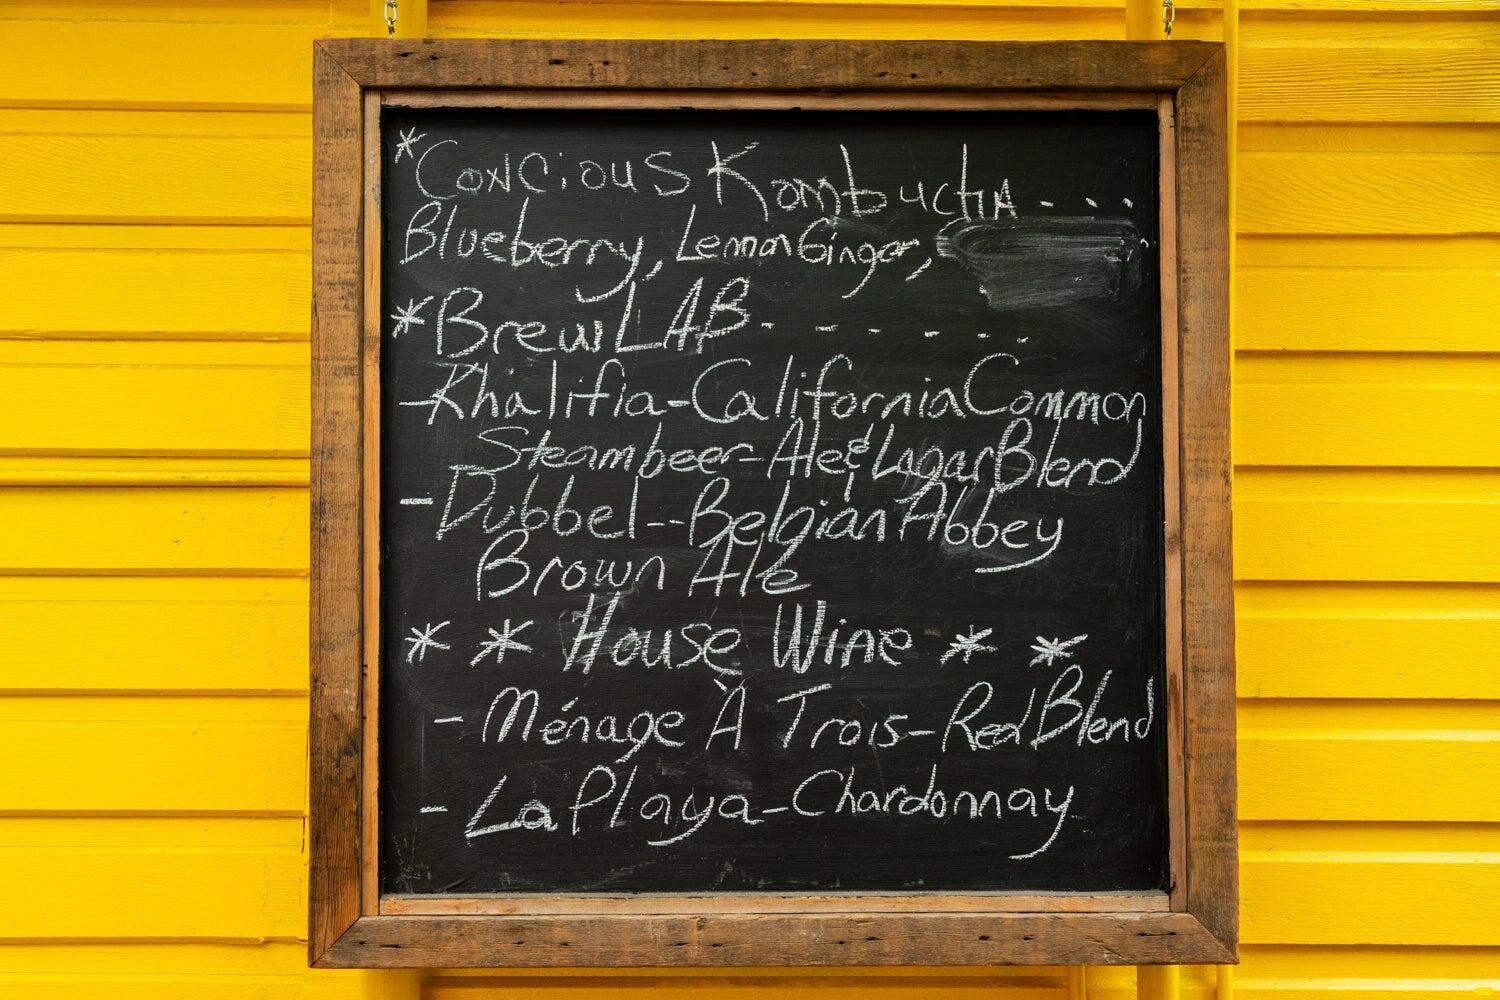 *Concious Kombucha . . . .
Blueberry, Lemon Ginger,
*Brew LAB. - - - - - -
-Khalifia-California Common
Steambeer-Ale & Lagar Blend
-Dubbel--Belgian Abbey
Brown Ale
* * House Wine * *
- Ménage À Trois-Red Blend
- La Playa-Chardonnay